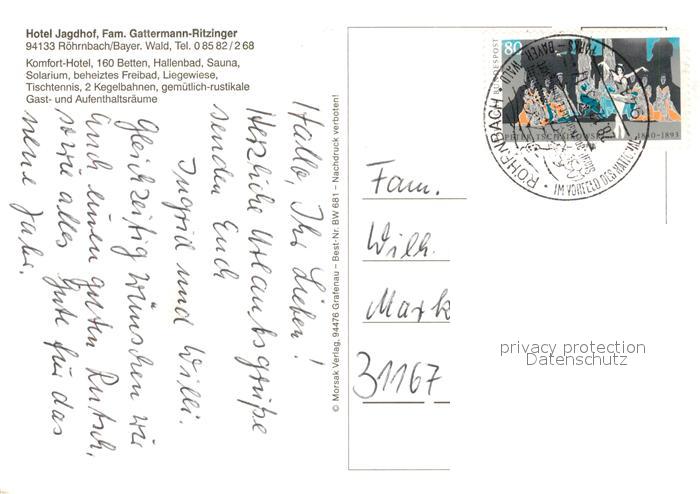 Hotel Jagdhof, Fam. Gattermann-Ritzinger
94133 Röhrnbach/Bayer. Wald, Tel. 0 85 82 / 2 68
Komfort-Hotel, 160 Betten, Hallenbad, Sauna,
Solarium, beheiztes Freibad, Liegewiese,
Tischtennis, 2 Kegelbahnen, gemütlich-rustikale
Gast- und Aufenthaltsräume
Hallo, Ihr Lieben!
Herzliche Urlaubsgrüße
senden Euch
Ingrid und Willi.
Gleichzeitig wünschen wir
Euch einen guten Rutsch,
sowie alles Gute für das
neue Jahr.
© Morsak Verlag, 94476 Grafenau – Best-Nr. BW 681 – Nachdruck verboten!
80
BUNDESPOST
PETER TSCHAIKOWSKY
1840–1893
RÖHRNBACH
IM VORFELD DES NATIONAL
PARKS - BAYER. WALD
Fam.
Wilh.
Mark
31167
privacy protection
Datenschutz